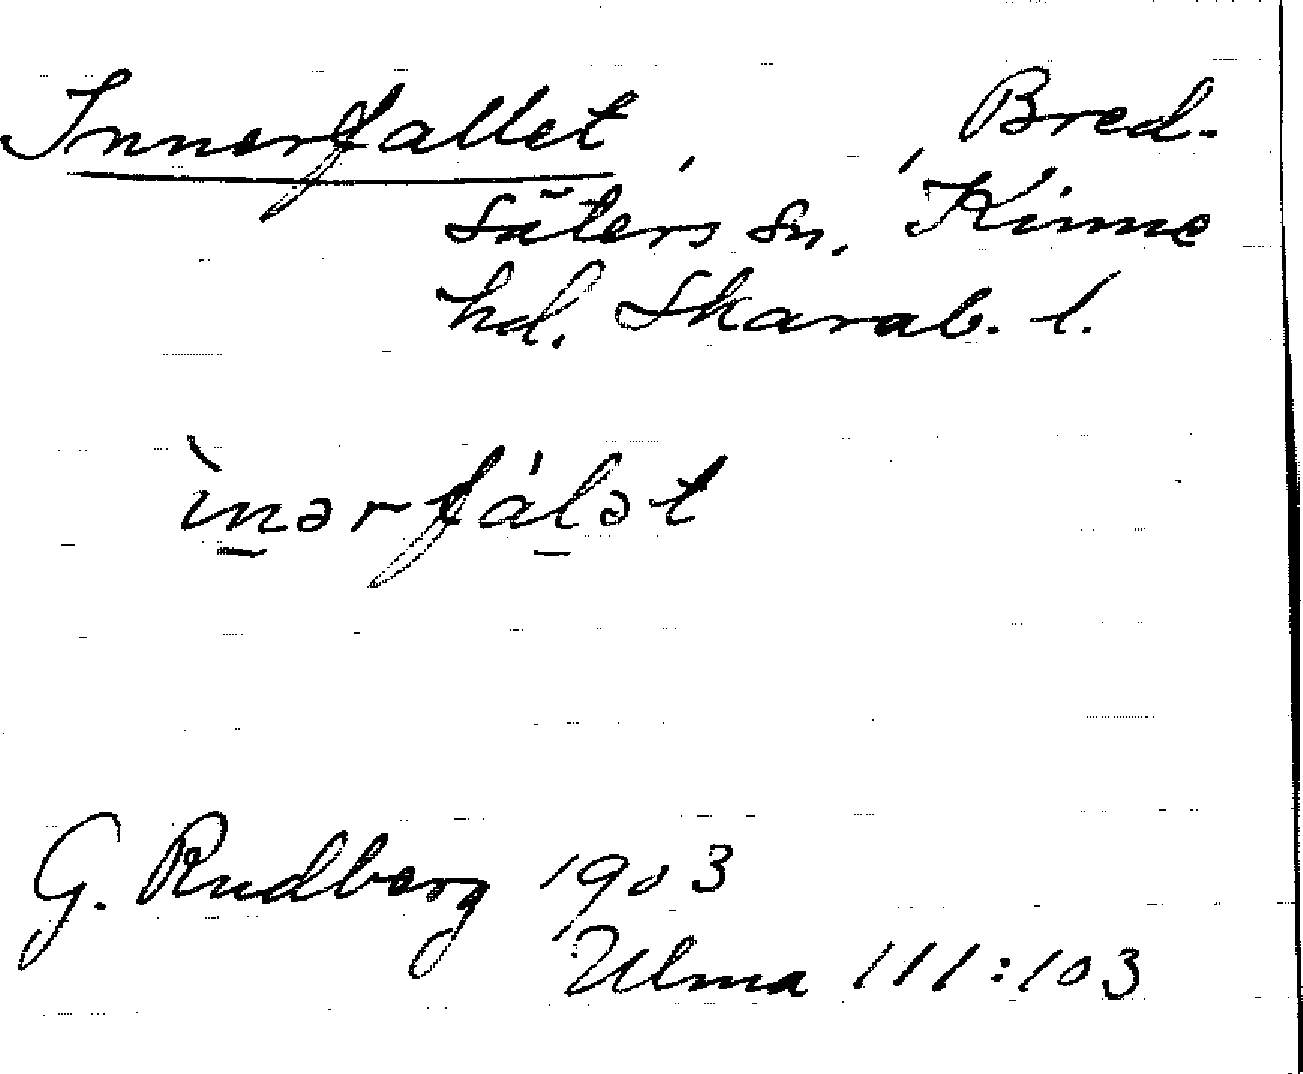 Innerfallet, , Bred-
säters sn, Kinne
hd. Skarab. l.
ìnərfálət
G. Rudberg 1903
Ulma 111:103